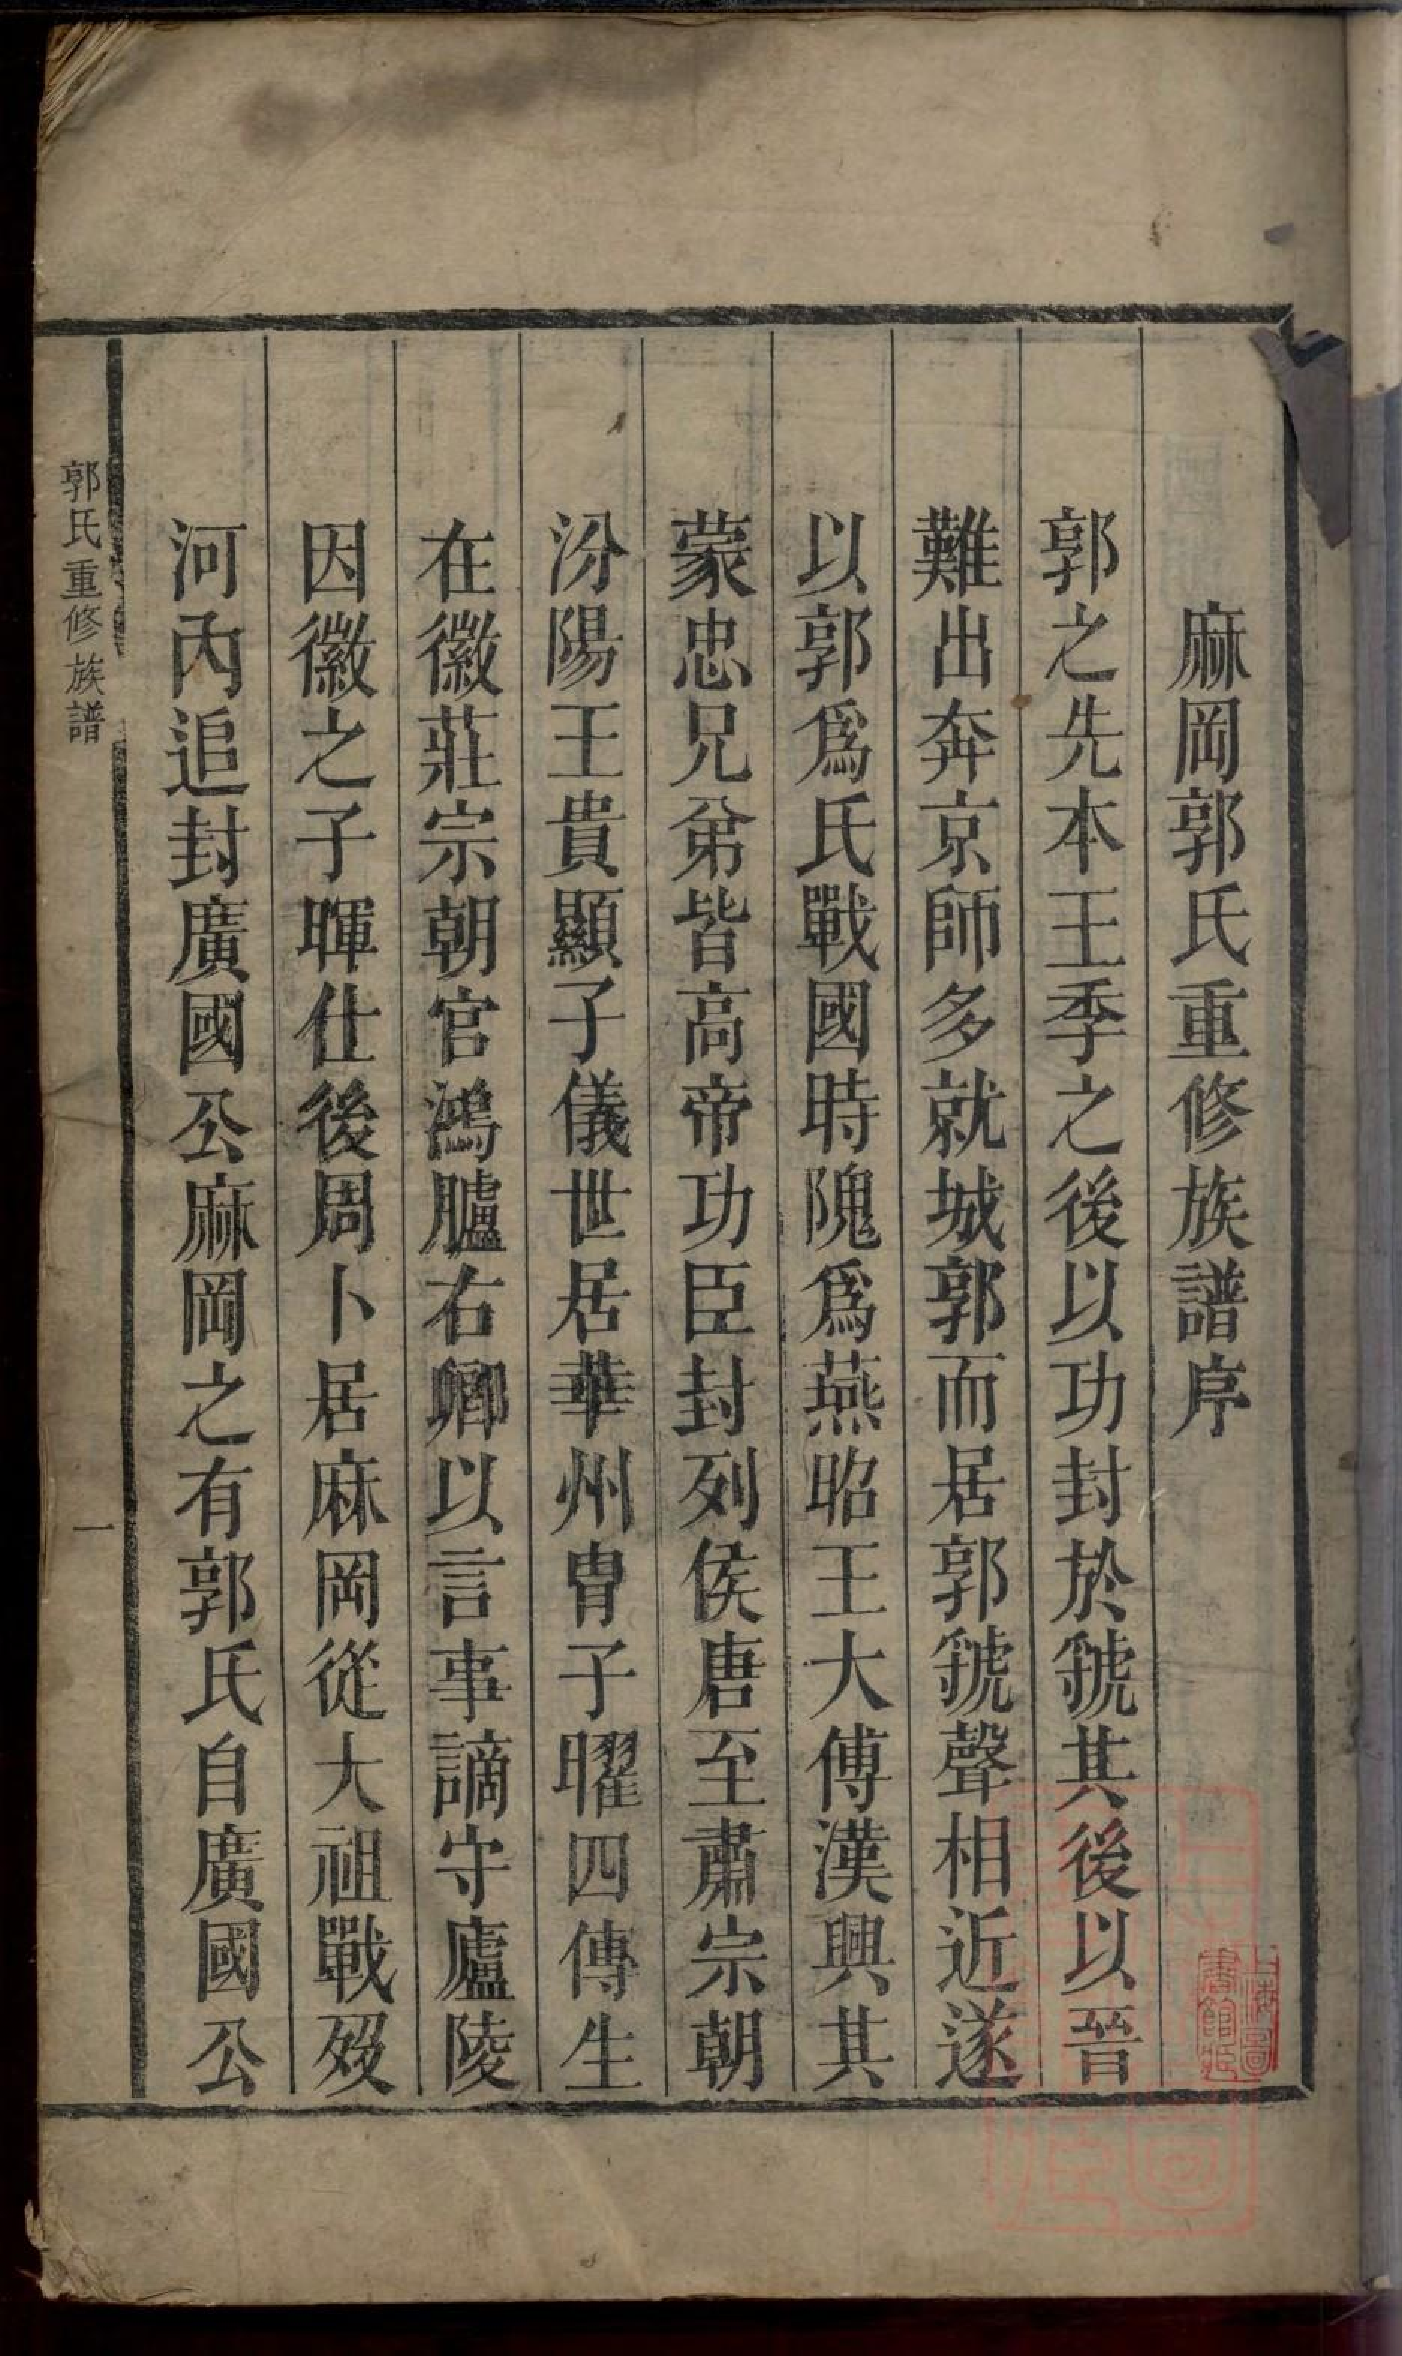 麻岡郭氏重修族譜序
郭之先本王季之後以功封於虢其後以晉
難出奔京師多就城郭而居郭虢聲相近遂
以郭爲氏戰國時隗爲燕昭王大傅漢興其
蒙忠兄弟皆高帝功臣封列侯唐至肅宗朝
汾陽王貴顯子儀世居華州胄子曜四傳生
在徽莊宗朝官鴻臚右卿以言事謫守廬陵
因徽之子暉仕後周卜居麻岡從大祖戰歿
河內追封廣國公麻岡之有郭氏自廣國公
郭氏重修族譜
一
上海圖
書館藏